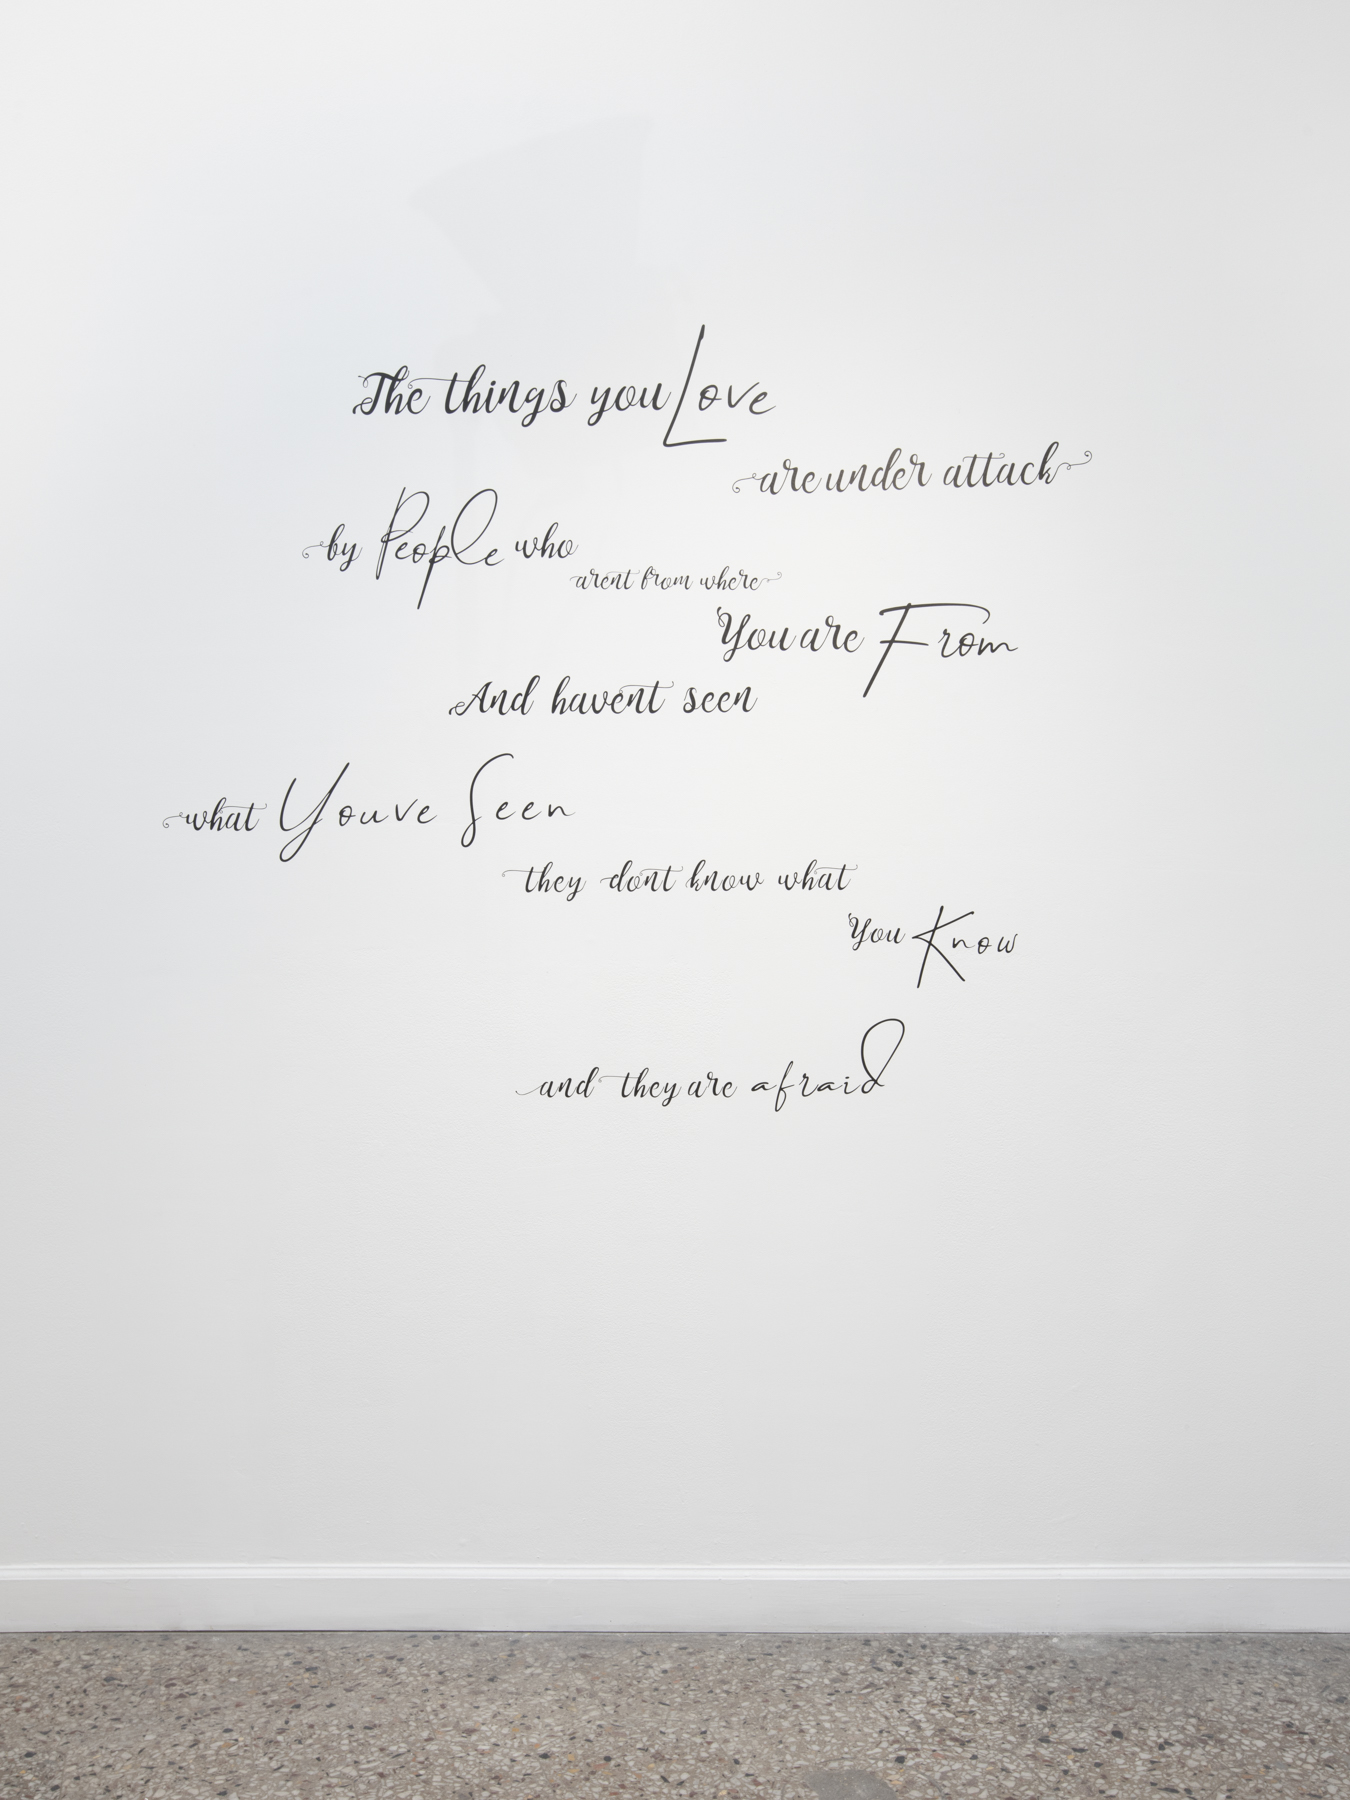 The things you Love
are under attack
by People who
arent from where
You are From
And havent seen
what Youve Seen
they dont know what
You Know
and they are afraid